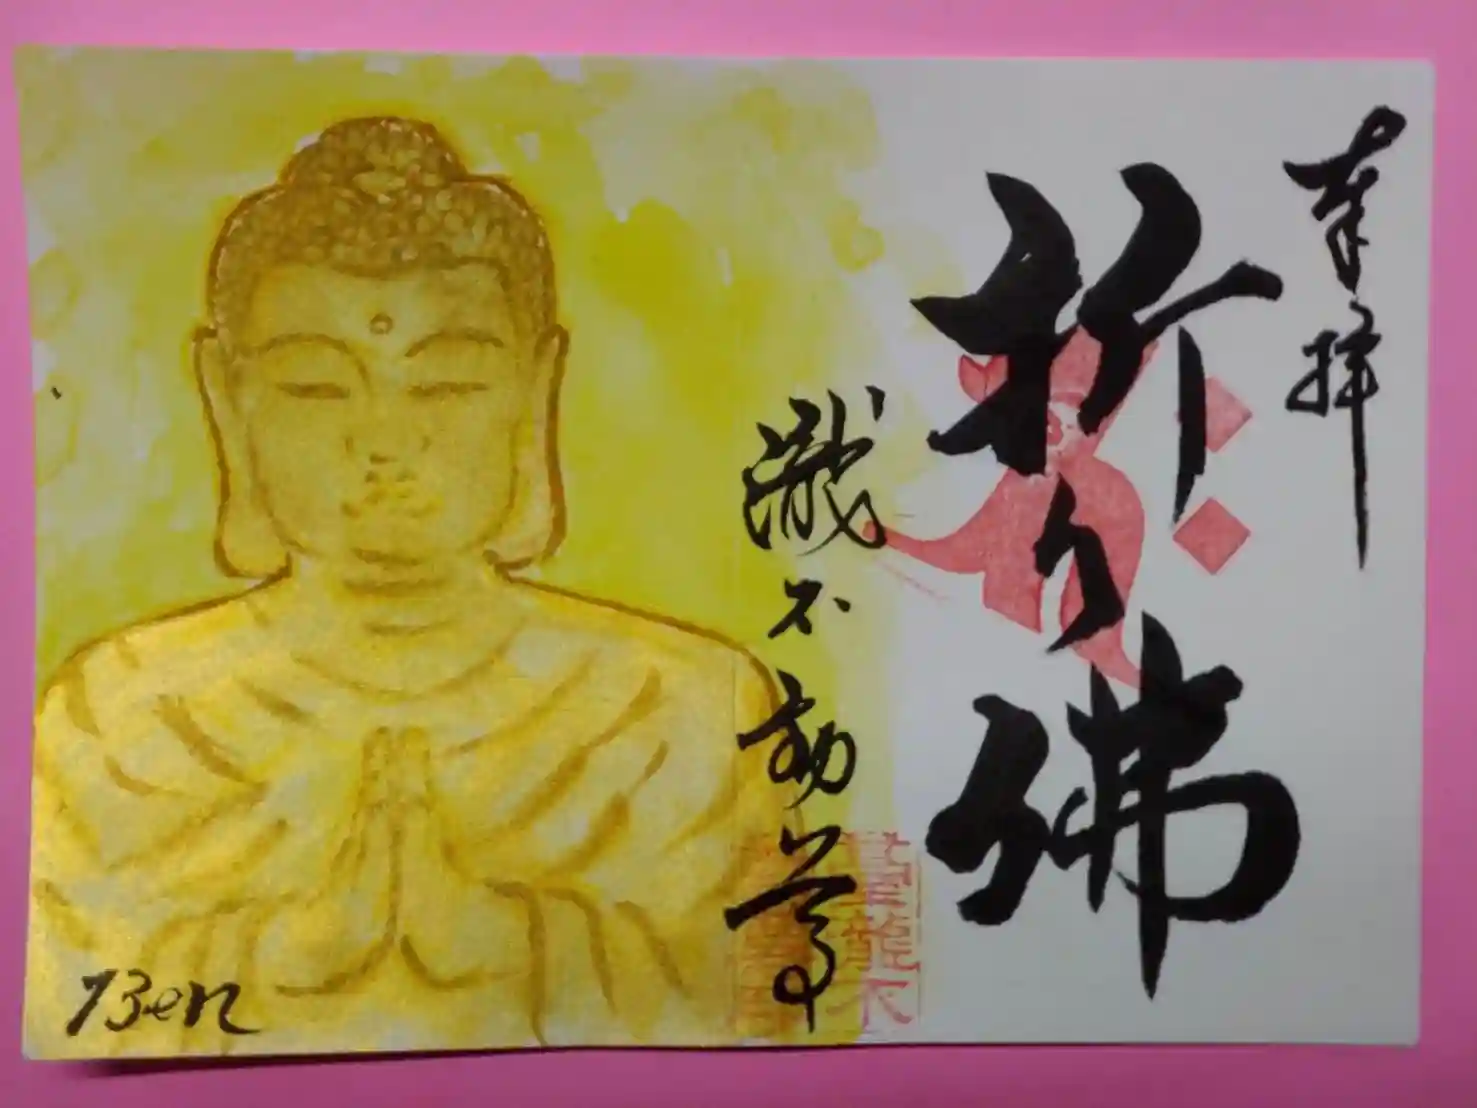 奉拝
折り佛
瀧不動尊
Ben